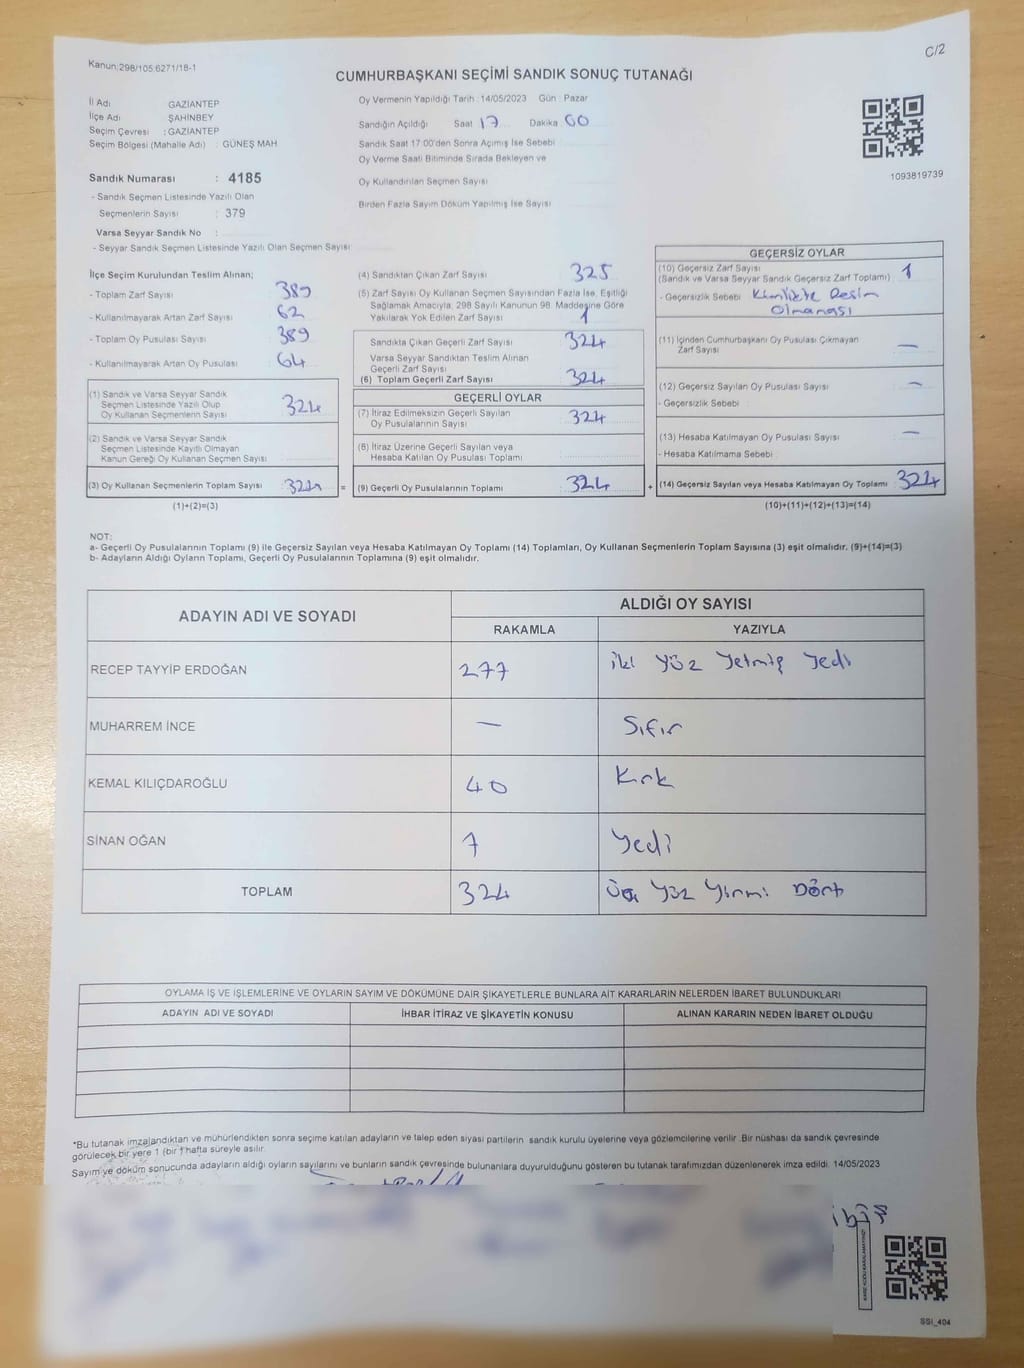 C/2
Kanun:298/105.6271/18-1
CUMHURBAŞKANI SEÇİMİ SANDIK SONUÇ TUTANAĞI
İl Adı GAZİANTEP
İlçe Adı ŞAHİNBEY
Seçim Çevresi : GAZİANTEP
Seçim Bölgesi (Mahalle Adı) : GÜNEŞ MAH
Sandık Numarası : 4185
- Sandık Seçmen Listesinde Yazılı Olan
Seçmenlerin Sayısı : 379
Varsa Seyyar Sandık No :
- Seyyar Sandık Seçmen Listesinde Yazılı Olan Seçmen Sayısı
Oy Vermenin Yapıldığı Tarih : 14/05/2023 Gün : Pazar
Sandığın Açıldığı Saat 17 Dakika 00
Sandık Saat 17:00'den Sonra Açımış İse Sebebi
Oy Verme Saati Bitiminde Sırada Bekleyen ve
Oy Kullandırılan Seçmen Sayısı
Birden Fazla Sayım Döküm Yapılmış İse Sayısı
1093819739
İlçe Seçim Kurulundan Teslim Alınan;
- Toplam Zarf Sayısı 389
- Kullanılmayarak Artan Zarf Sayısı 62
- Toplam Oy Pusulası Sayısı 389
- Kullanılmayarak Artan Oy Pusulası 64
(1) Sandık ve Varsa Seyyar Sandık
Seçmen Listesinde Yazılı Olup
Oy Kullanan Seçmenlerin Sayısı 324
(2) Sandık ve Varsa Seyyar Sandık
Seçmen Listesinde Kayıtlı Olmayan
Kanun Gereği Oy Kullanan Seçmen Sayısı
(3) Oy Kullanan Seçmenlerin Toplam Sayısı 324 =
(1)+(2)=(3)
(4) Sandıktan Çıkan Zarf Sayısı 325
(5) Zarf Sayısı Oy Kullanan Seçmen Sayısından Fazla İse, Eşitliği
Sağlamak Amacıyla, 298 Sayılı Kanunun 98. Maddesine Göre
Yakılarak Yok Edilen Zarf Sayısı 1
Sandıkta Çıkan Geçerli Zarf Sayısı 324
Varsa Seyyar Sandıktan Teslim Alınan
Geçerli Zarf Sayısı
(6) Toplam Geçerli Zarf Sayısı 324
GEÇERLİ OYLAR
(7) İtiraz Edilmeksizin Geçerli Sayılan
Oy Pusulalarının Sayısı 324
(8) İtiraz Üzerine Geçerli Sayılan veya
Hesaba Katılan Oy Pusulası Toplamı
(9) Geçerli Oy Pusulalarının Toplamı 324 +
GEÇERSİZ OYLAR
(10) Geçersiz Zarf Sayısı
(Sandık ve Varsa Seyyar Sandık Geçersiz Zarf Toplamı) 1
- Geçersizlik Sebebi Kimlikte Resim
Olmaması
(11) İçinden Cumhurbaşkanı Oy Pusulası Çıkmayan
Zarf Sayısı —
(12) Geçersiz Sayılan Oy Pusulası Sayısı —
- Geçersizlik Sebebi
(13) Hesaba Katılmayan Oy Pusulası Sayısı —
- Hesaba Katılmama Sebebi
(14) Geçersiz Sayılan veya Hesaba Katılmayan Oy Toplamı 324
(10)+(11)+(12)+(13)=(14)
NOT:
a- Geçerli Oy Pusulalarının Toplamı (9) ile Geçersiz Sayılan veya Hesaba Katılmayan Oy Toplamı (14) Toplamları, Oy Kullanan Seçmenlerin Toplam Sayısına (3) eşit olmalıdır. (9)+(14)=(3)
b- Adayların Aldığı Oyların Toplamı, Geçerli Oy Pusulalarının Toplamına (9) eşit olmalıdır.
ADAYIN ADI VE SOYADI ALDIĞI OY SAYISI
RAKAMLA YAZIYLA
RECEP TAYYİP ERDOĞAN 277 iki yüz yetmiş yedi
MUHARREM İNCE — Sıfır
KEMAL KILIÇDAROĞLU 40 Kırk
SİNAN OĞAN 7 Yedi
TOPLAM 324 Üç Yüz Yirmi Dört
OYLAMA İŞ VE İŞLEMLERİNE VE OYLARIN SAYIM VE DÖKÜMÜNE DAİR ŞİKAYETLERLE BUNLARA AİT KARARLARIN NELERDEN İBARET BULUNDUKLARI
ADAYIN ADI VE SOYADI İHBAR İTİRAZ VE ŞİKAYETİN KONUSU ALINAN KARARIN NEDEN İBARET OLDUĞU
*Bu tutanak imzalandıktan ve mühürlendikten sonra seçime katılan adayların ve talep eden siyasi partilerin sandık kurulu üyelerine veya gözlemcilerine verilir. Bir nüshası da sandık çevresinde
görülecek bir yere 1 (bir) hafta süreyle asılır.
Sayım ve döküm sonucunda adayların aldığı oyların sayılarını ve bunların sandık çevresinde bulunanlara duyurulduğunu gösteren bu tutanak tarafımızdan düzenlenerek imza edildi. 14/05/2023
KARE KODU KARALAMAYINIZ!
SSI_404